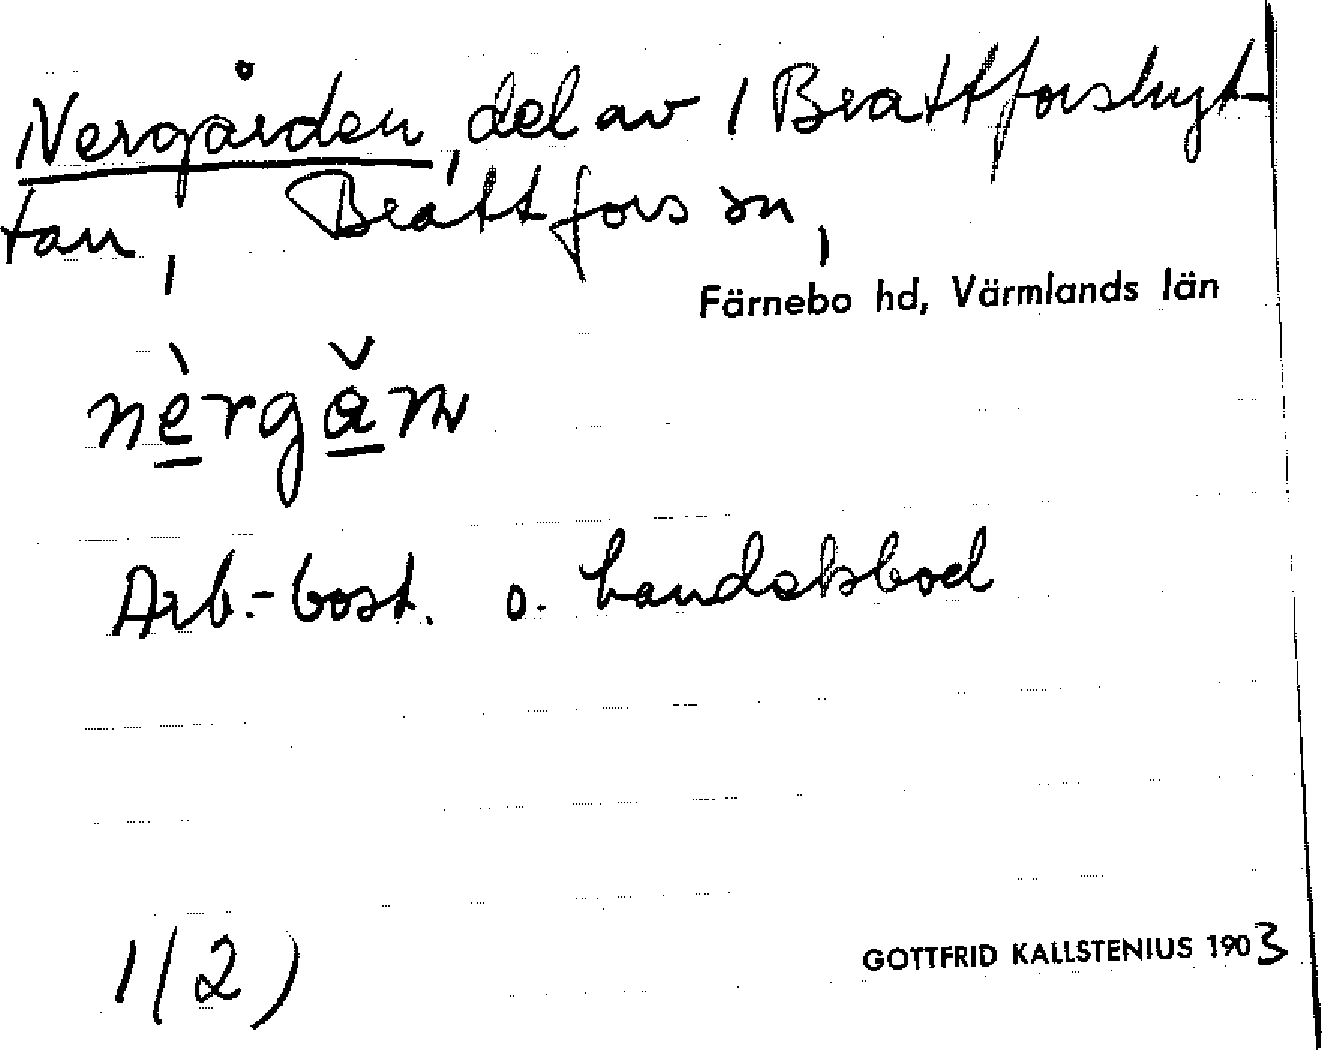 Nergården, del av 1 Brattforshyt-
tan, Brattfors sn,
Färnebo hd, Värmlands län
nèrgǎn
Arb.-bost. o. handelsbod
1(2)
GOTTFRID KALLSTENIUS 1903